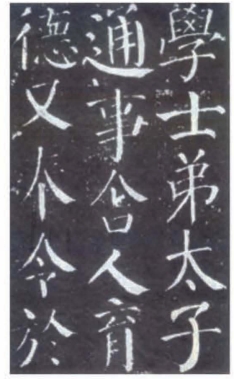 學士弟太子
通事舍人育
德又令於